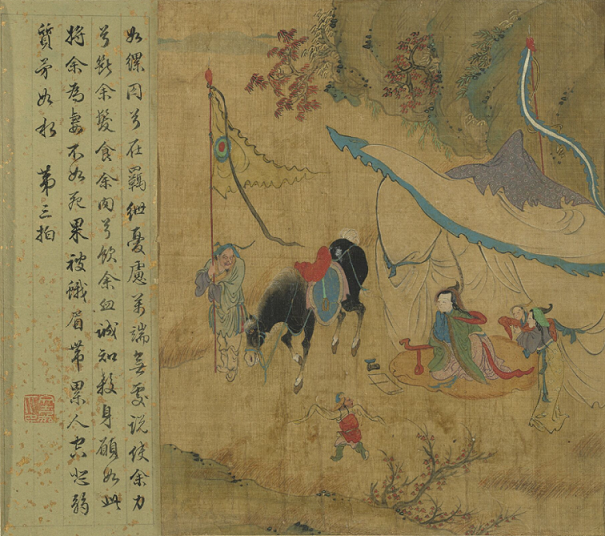 如縲囚兮在羈紲憂慮萬端無處說使余力
兮斷余髮食余肉兮飲余血誠知殺身願如此
將余為妻不如死果被蛾眉帶累人空悲弱
質柔如水 第三拍